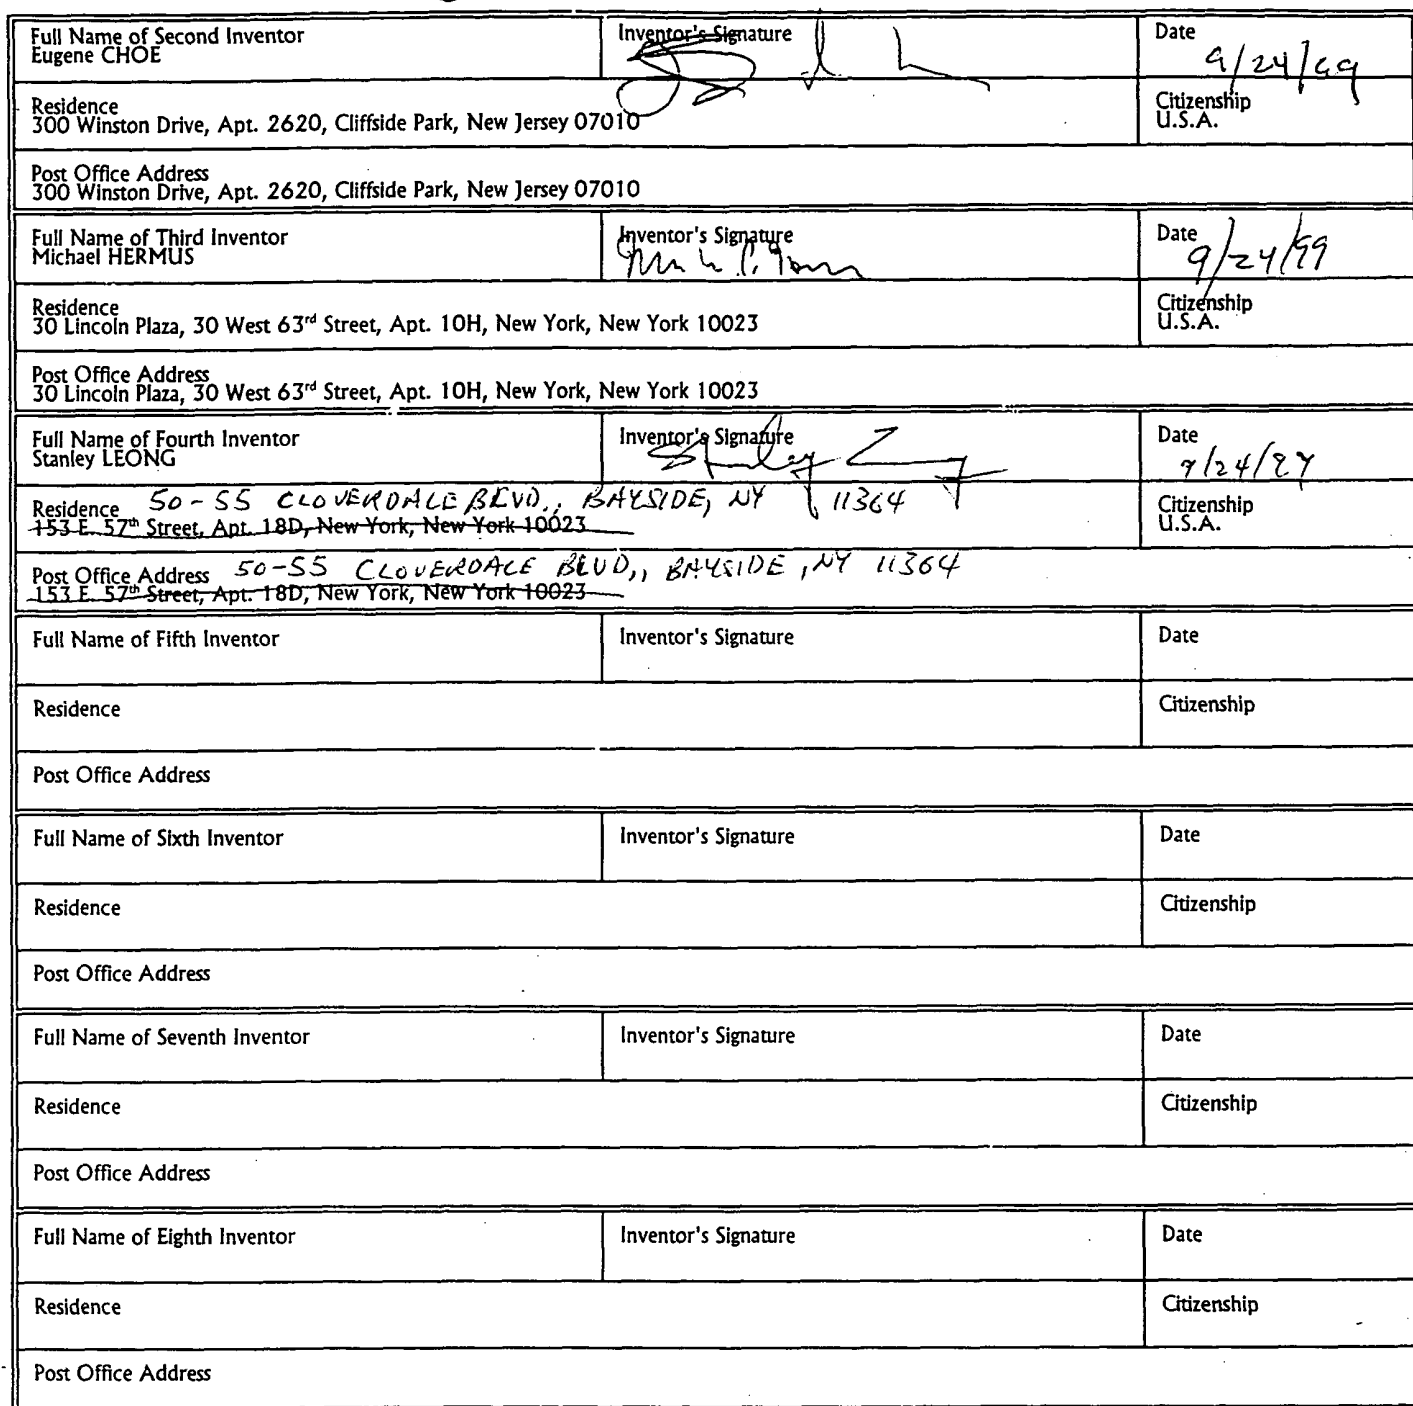 Full Name of Second Inventor
Eugene CHOE
Inventor's Signature
Date
9/24/99
Residence
300 Winston Drive, Apt. 2620, Cliffside Park, New Jersey 07010
Citizenship
U.S.A.
Post Office Address
300 Winston Drive, Apt. 2620, Cliffside Park, New Jersey 07010
Full Name of Third Inventor
Michael HERMUS
Inventor's Signature
Date
9/24/99
Residence
30 Lincoln Plaza, 30 West 63rd Street, Apt. 10H, New York, New York 10023
Citizenship
U.S.A.
Post Office Address
30 Lincoln Plaza, 30 West 63rd Street, Apt. 10H, New York, New York 10023
Full Name of Fourth Inventor
Stanley LEONG
Inventor's Signature
Stanley Leong
Date
Residence 50-55 CLOVERDALE BLVD., BAYSIDE, NY 11364
153 E. 57th Street, Apt. 18D, New York, New York 10023
Citizenship
U.S.A.
Post Office Address 50-55 CLOVERDALE BLVD,, BAYSIDE, NY 11364
153 E. 57th Street, Apt. 18D, New York, New York 10023
Full Name of Fifth Inventor
Inventor's Signature
Date
Residence
Citizenship
Post Office Address
Full Name of Sixth Inventor
Inventor's Signature
Date
Residence
Citizenship
Post Office Address
Full Name of Seventh Inventor
Inventor's Signature
Date
Residence
Citizenship
Post Office Address
Full Name of Eighth Inventor
Inventor's Signature
Date
Residence
Citizenship
Post Office Address